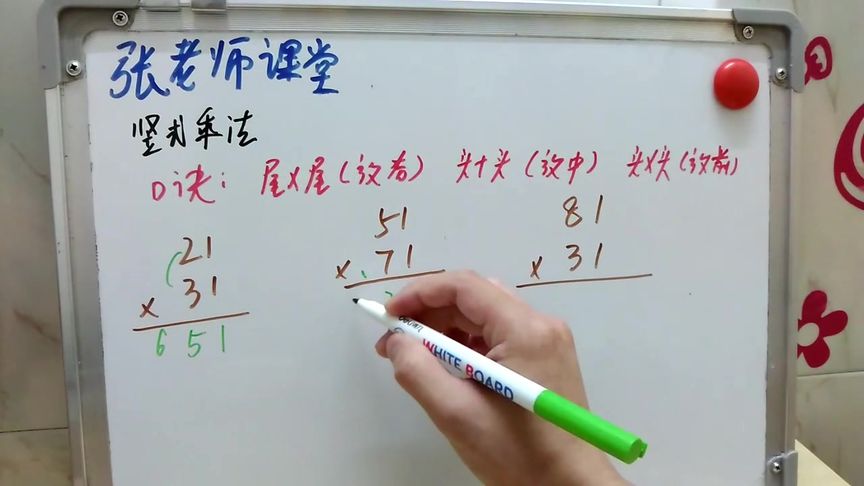 张老师课堂
竖式乘法
口诀：尾×尾(放后) 头+头(放中) 头×头(放前)
21
× 31
651
51
× 71
81
× 31
WHITE BOARD